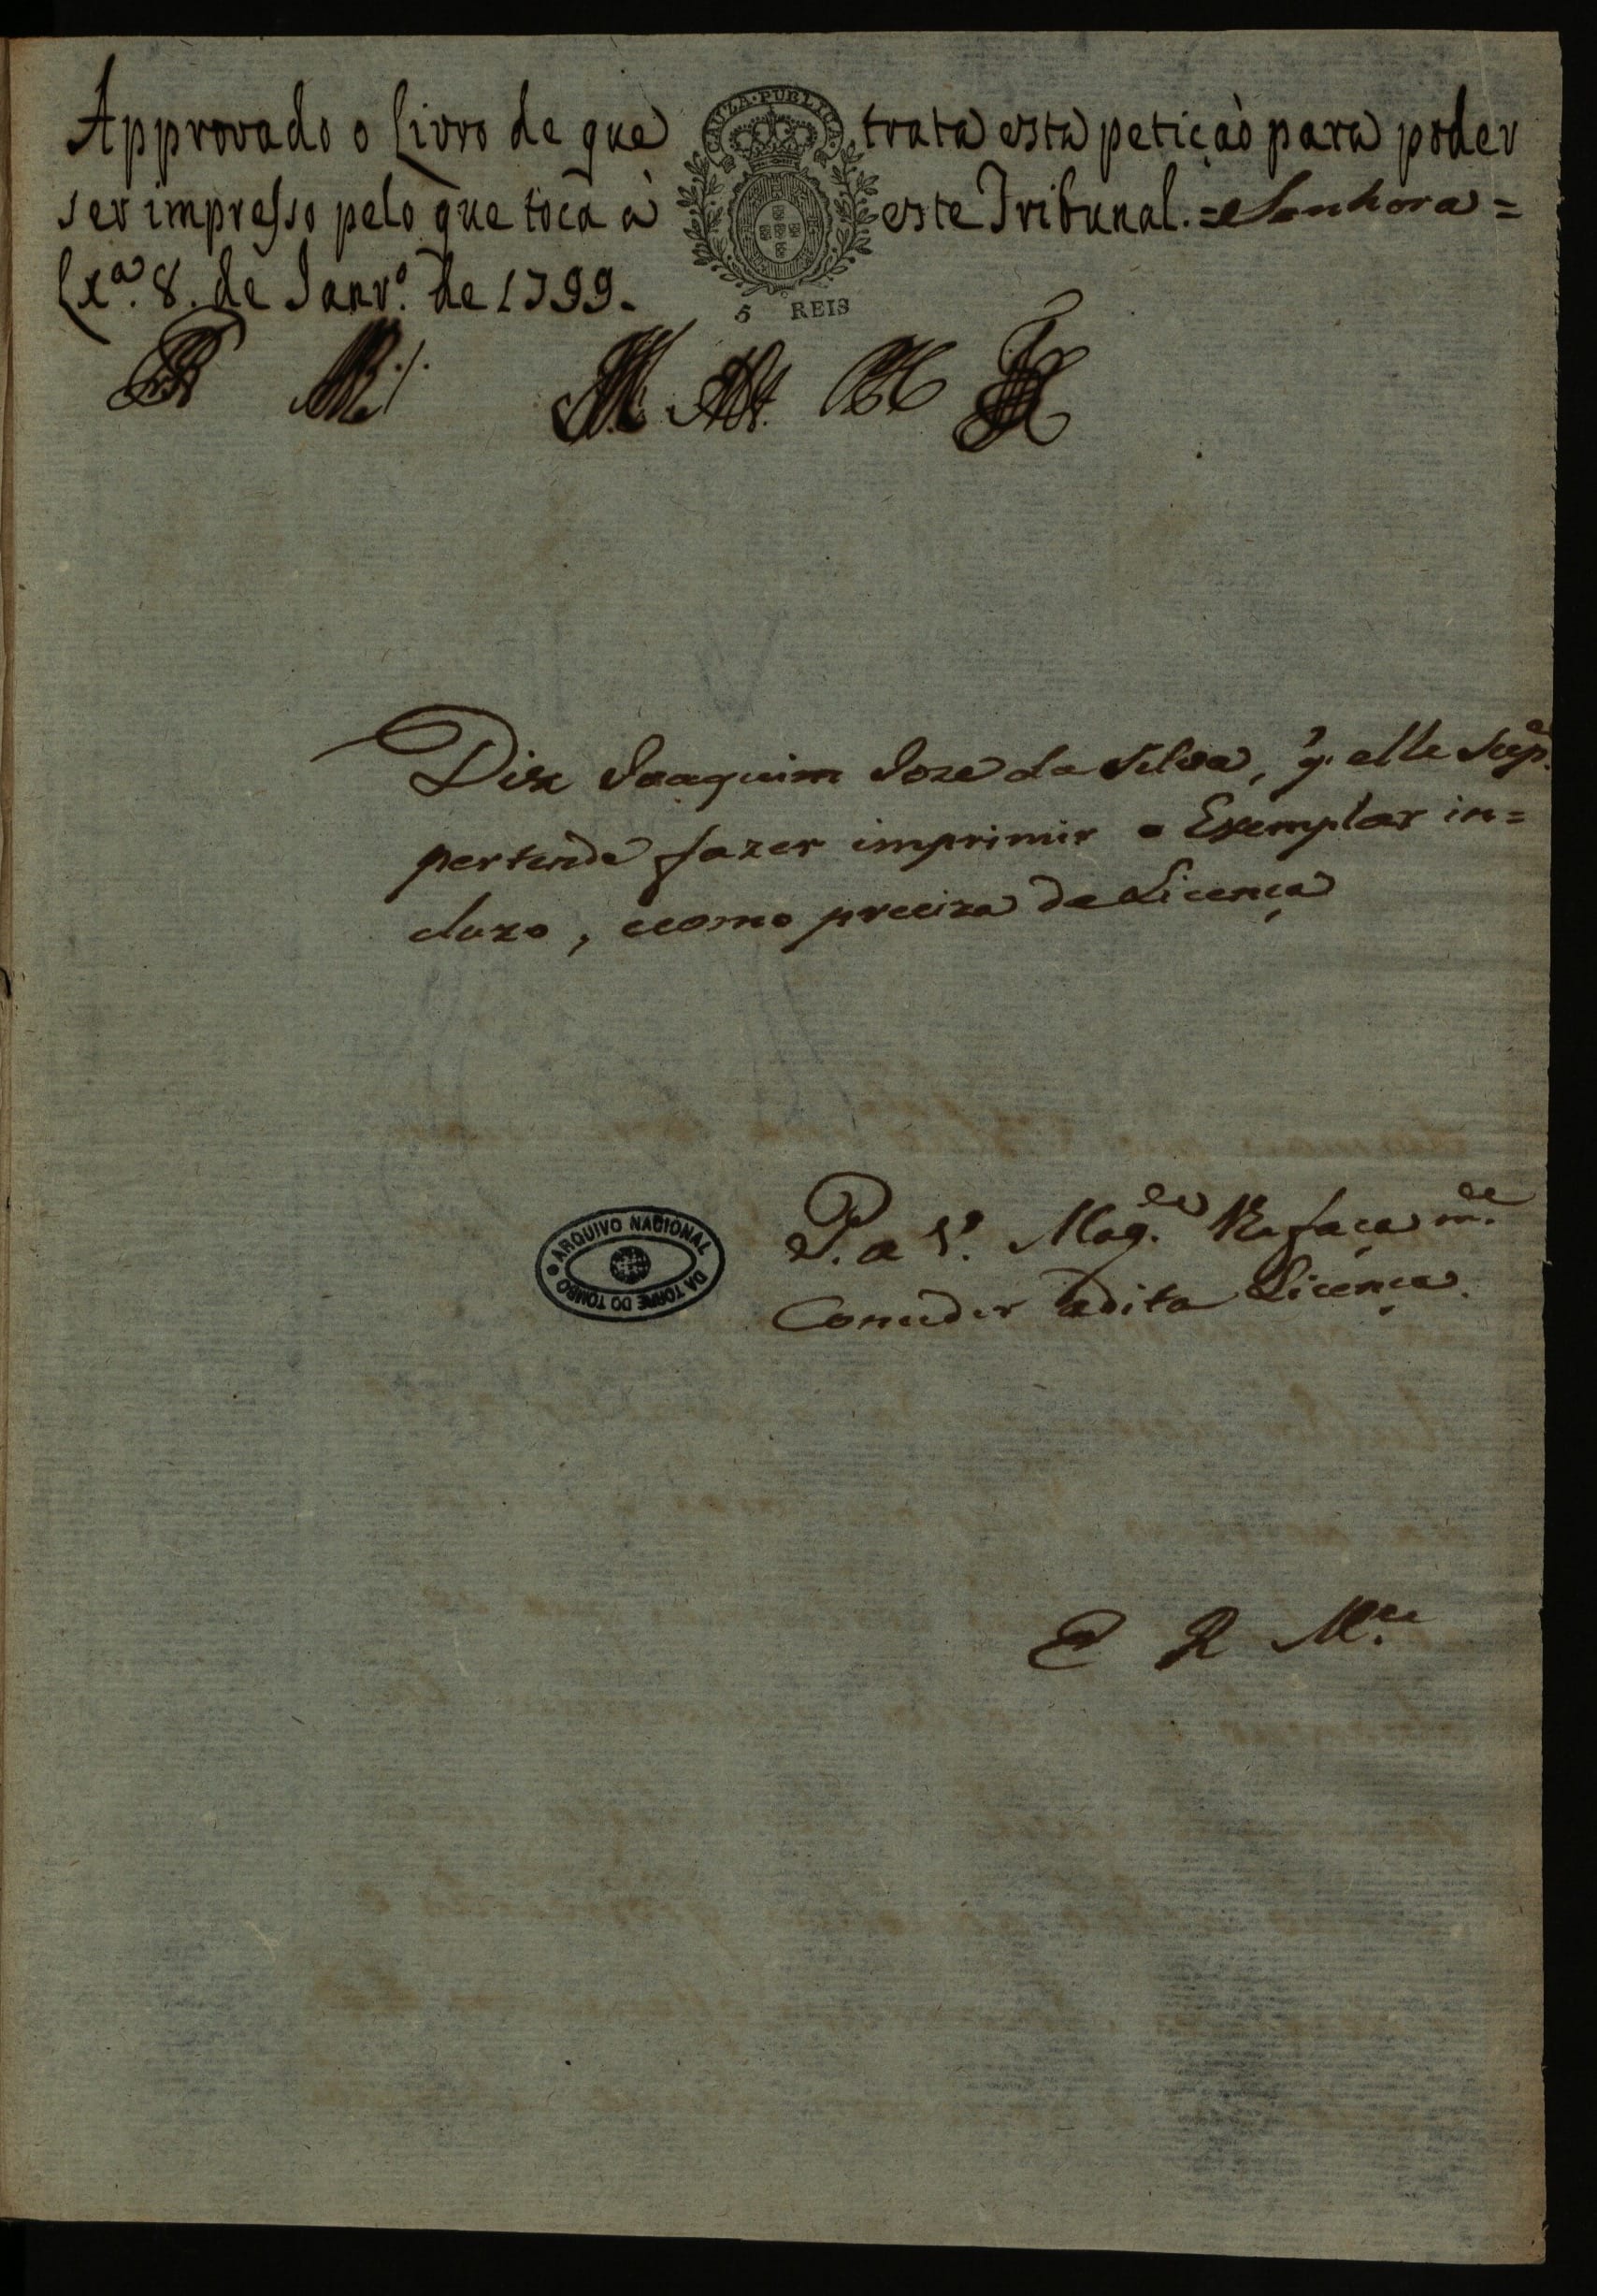 Approvado o Livro de que trata esta petiçaò para poder
ser impresso pelo que toca à este Tribunal. = Senhora =
Lxª. 8. de Janrº. de 1799.
CAUZA·PUBLICA
5 REIS
Dise Joaquim Joze da Silva, q. elle Supe.
pertende fazer imprimir o Exemplar in=
cluzo, ecomo preciza de Licença
P. a V. Magde. lhe faça mce.
Conceder adita Licença.
ARQUIVO NACIONAL
DA TORRE DO TOMBO
E R Mce.